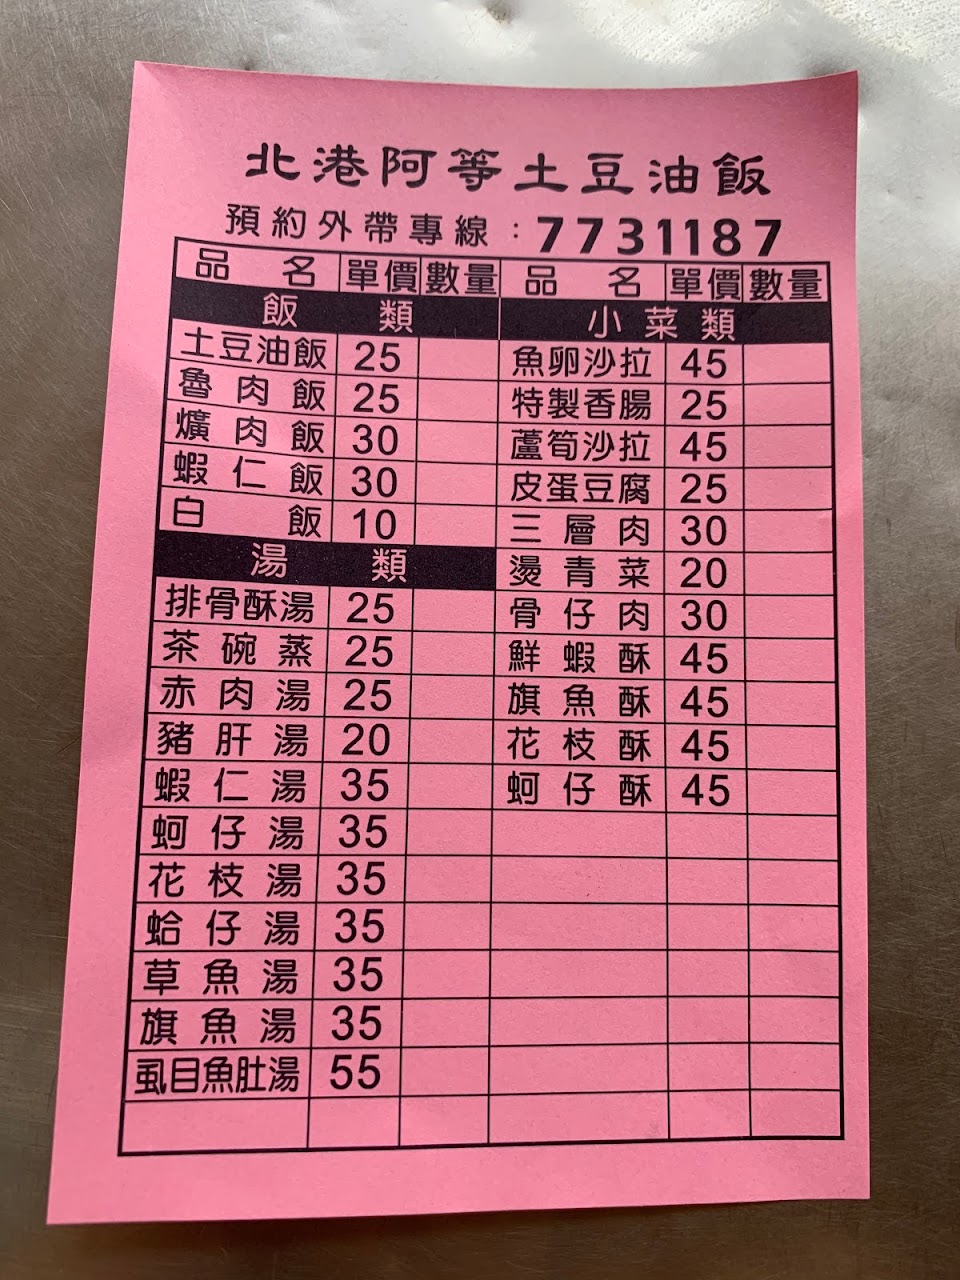 北港阿等土豆油飯
預約外帶專線：7731187
品名 單價 數量 品名 單價 數量
飯類
土豆油飯 25
魯肉飯 25
爌肉飯 30
蝦仁飯 30
白飯 10
湯類
排骨酥湯 25
茶碗蒸 25
赤肉湯 25
豬肝湯 20
蝦仁湯 35
蚵仔湯 35
花枝湯 35
蛤仔湯 35
草魚湯 35
旗魚湯 35
虱目魚肚湯 55
小菜類
魚卵沙拉 45
特製香腸 25
蘆筍沙拉 45
皮蛋豆腐 25
三層肉 30
燙青菜 20
骨仔肉 30
鮮蝦酥 45
旗魚酥 45
花枝酥 45
蚵仔酥 45